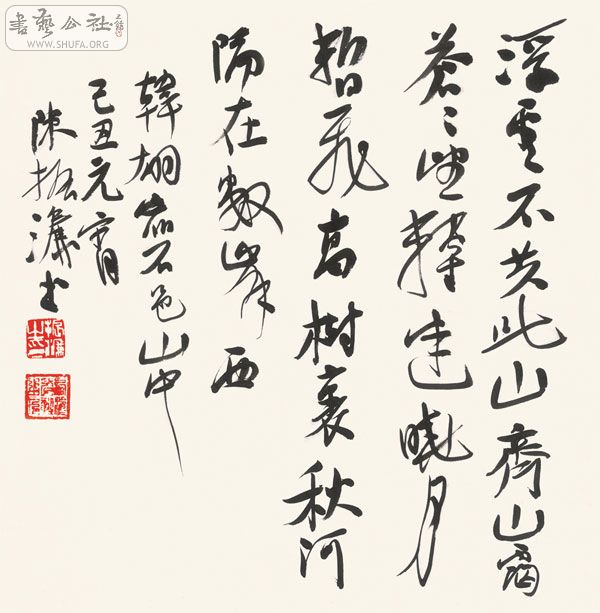 書藝公社
WWW.SHUFA.ORG
浮雲不共此山齊山靄
蒼〻望轉迷曉月
暫飛高樹裏秋河
隔在數峯西
韓翃宿石邑山中
己丑元宵
陳振濂書